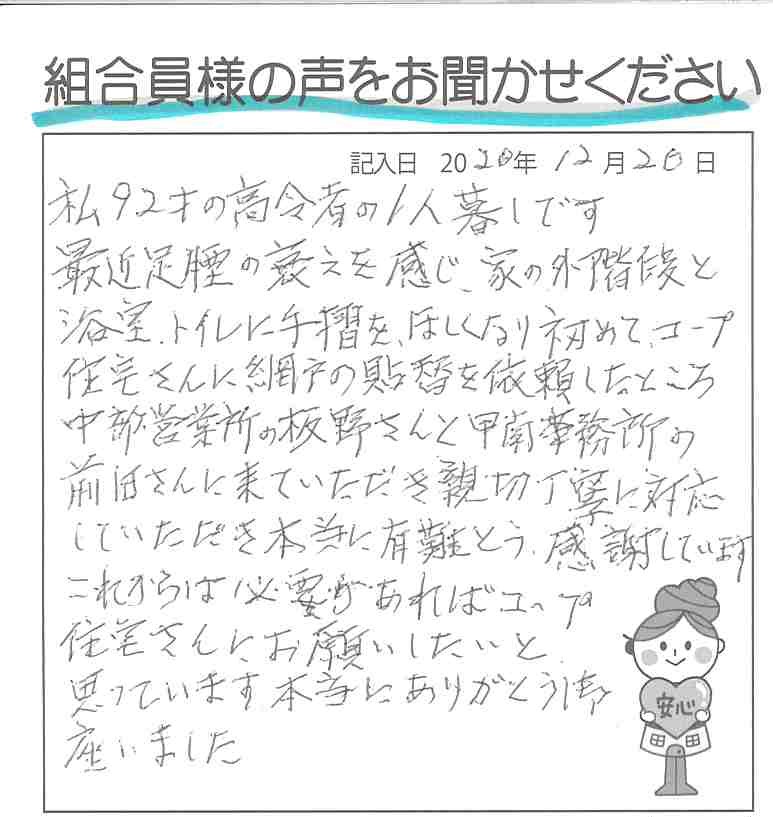 組合員様の声をお聞かせください
記入日 2020年 12月20日
私92才の高令者の1人暮しです
最近足腰の衰えを感じ、家の外階段と
浴室、トイレに手摺を、ほしくなり初めて、コープ
住宅さんに網戸の貼替を依頼したところ
中部営業所の板野さんと甲南事務所の
前田さんに来ていただき親切丁寧に対応
していただき本当に有難とう、感謝しています
これからは必要があればコープ
住宅さんにお願いしたいと
思っています本当にありがとう御
座いました
安心